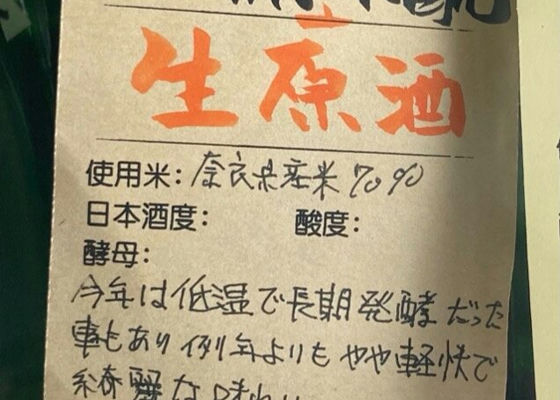 生原酒
使用米:奈良県産米70%
日本酒度: 酸度:
酵母:
今年は低温で長期発酵だった
事もあり例年よりもやや軽快で
綺麗な味わい